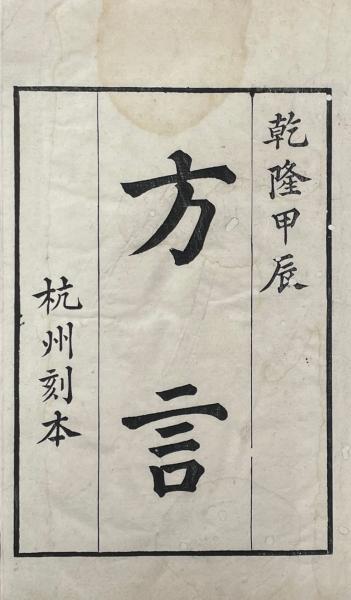 乾隆甲辰
方言
杭州刻本